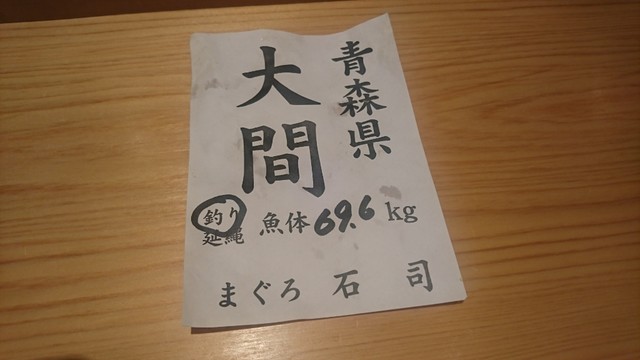 青森県
大間
釣り
延縄 魚体 69.6 kg
まぐろ 石司